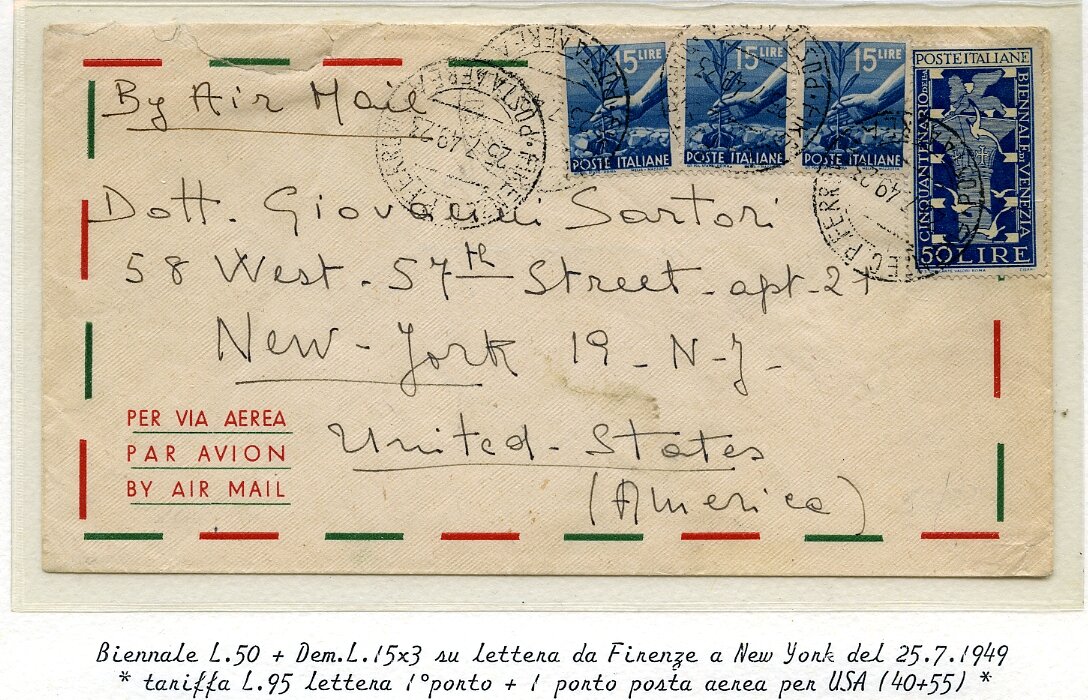 By Air Mail
15 LIRE
POSTE ITALIANE
15 LIRE
POSTE ITALIANE
15 LIRE
POSTE ITALIANE
POSTE ITALIANE
CINQUANTENARIO DELLA
BIENNALE DI VENEZIA
50 LIRE
POSTA AEREA
25.7.49.23
Dott. Giovanni Sartori
58 West-57th Street-apt-2
New-York 19-N-Y-
United-States
(America)
PER VIA AEREA
PAR AVION
BY AIR MAIL
Biennale L.50 + Dem.L.15x3 su lettera da Firenze a New York del 25.7.1949
* tariffa L.95 lettera 1°porto + 1 porto posta aerea per USA (40+55) *